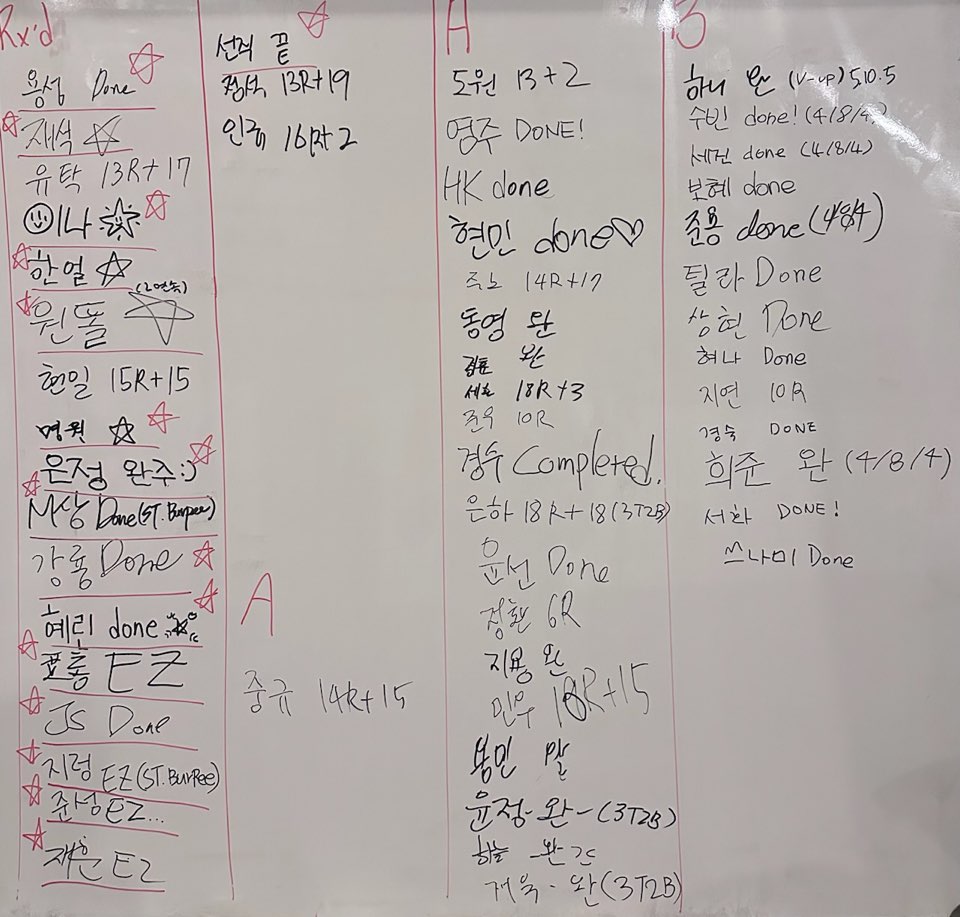 Rx'd
용성 Done
재석
유탁 13R+17
이나
한얼
(2연속)
원똘
현일 15R+15
명원
은정 완주:)
M상 Done(ST. Burpee)
강룡 Done
혜린 done
표롱 EZ
JS Done
지렁 EZ(ST. BurPee)
준성 EZ...
재훈 EZ
선희 끝
정석 13R+19
인규 16R+2
A
중규 14R+15
A
도원 13+2
영주 DONE!
HK done
현민 done♡
준노 14R+17
동영 완
완
세호 18R+3
준우 10R
경수 Completed.
은하 18R+18(3T2B)
윤선 Done
정환 6R
지용 완
민우 18R+15
용민 딸
윤정-완-(3T2B)
하늘 -완
거욱- 완(3T2B)
B
하니 완 (V-up) 5.10.5
수빈 done! (4/8/4)
세진 done (4/8/4)
보혜 done
준용 done (4/8/4)
틸라 Done
상현 Done
혀나 Done
지연 10R
경숙 DONE
희준 완 (4/8/4)
서화 DONE!
쓰나미 Done